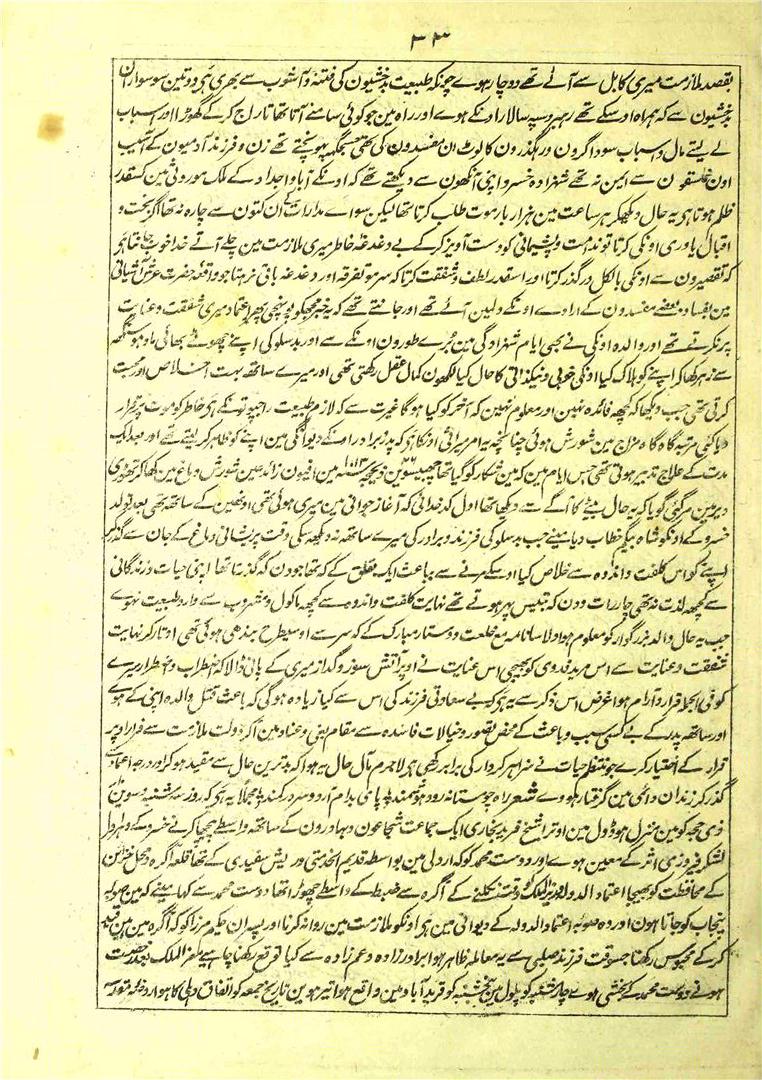 ۳۳
بقصد ملازمت میری کابل سے آتے تھے دوچار ہوے چونکہ طبیعت بدخشیون کی فتنہ و آشوب سے بھری ہی دو تین سو سواران
بدخشیون سے کہ ہمراہ اوسکے تھے رہبر و سپہ سالار اونکے ہوے اور راہ مین جو کوئی سامنے آتا تھا تاراج کر کے گھوڑا اور اسباب
لے لیتے مال و اسباب سوداگرون و رہگذرون کا لوٹ ان مفسدون کی تھی جسجگہ پہونچتے تھے زن و فرزند آدمیون کے آسیب
اون سے ایمن نہ تھے شہزادہ خسرو اپنی آنکھون سے دیکھتے تھے کہ اونکے آبا و اجداد کے ملک موروثی مین کسقدر
ظلم ہوتا ہی یہ حال دیکھکر ہر ساعت مین ہزار بار موت طلب کرتا تھا لیکن سواے مدارات کے ان کتون سے چارہ نہ تھا اگر بخت و
اقبال یاوری اونکی کرتا تو ندامت و پشیمانی کو دست آویز کر کے بے دغدغہ خاطر میری ملازمت مین چلے آتے خدا خوب جانتا ہی
کہ تقصیرون سے اونکی بالکل درگذر کرتا اور اسقدر لطف و شفقت کرتا کہ سر مو تفرقہ اور دغدغہ باقی نرہتا جو واقعہ حضرت عرش آشیانی
مین بفساد بعضے مفسدون کے ارادے اونکے دلین آئے تھے اور جانتے تھے کہ یہ خبر مجھکو پہونچی پھر اعتماد میری شفقت و عنایت
پر نکرتے تھے اور والدہ اونکی نے بھی ایام شہزادگی مین برے طورون اونکے سے اور بدسلوکی اپنے چھوٹے بھائی مادھو سنگھ
سے زہر کھا کر اپنے کو ہلاک کیا اونکی خوبی و نیکذاتی کا حال کیا لکھون کمال عقل رکھتی تھی اور میرے ساتھ بہت اخلاص اور محبت
کرتی تھی جب دیکھا کہ کچھ فائدہ نہین اور معلوم نہین کہ آخر کو کیا ہو گا غیرت سے کہ لازم طبیعت راجپوتونکے ہی خاطر کو موت پر قرار
دیا کئی مرتبہ گاہ گاہ مزاج مین شورش ہوئی چنانچہ یہ امر میراثی اونکا ہی کہ پدر و برادر اونکے دیوانگی مین اپنے کو ظاہر کر لیتے تھے اور بعد ایک
مدت کے علاج تدبیر ہوتی تھی جس ایام مین کہ مین شکار کو گیا تھا چھبیسوین ذیحجہ ۱۰۱۳ مین افیون زائد عین شورش دماغ مین کھا کر تھوڑی
دیر مین مر گئی گویا کہ یہ حال بیٹے کا آگے سے دیکھا تھا اول کدخدائی کہ آغاز جوانی مین میری ہوئی تھی اونھین کے ساتھ تھی بعد تولد
خسرو کے اونکو شاہ بیگم خطاب دیا مینے جب بدسلوکی فرزند و برادر کی میرے ساتھ نہ دیکھ سکی وقت پریشانی دماغ کے جان سے گذر کر
اپنے کو اس کلفت و اندوہ سے خلاص کیا اوسکے مرنے سے بباعث ایک تعلق کے کہ تھا جو دن کہ گذرتا تھا اپنی حیات و زندگانی
سے کچھ لذت نہ تھی چار رات و دن کہ بتیس پہر ہوتے تھے نہایت کلفت و اندوہ سے کچھ ماکول و مشروب سے وارد طبیعت نہوے
جب یہ حال والد بزرگوار کو معلوم ہوا دلاسا نامہ مع خلعت و دستار مبارک کے کہ سر سے اوسیطرح بندھی ہوئی تھی اوتار کر نہایت
شفقت و عنایت سے اس مرید فدوی کو بھیجی اس عنایت نے اوپر آتش سوز و گداز میری کے پانی ڈالا کہ اضطراب و اضطرار میرے
کو فی الجملہ قرار و آرام ہوا غرض اس ذکر سے یہ ہی کہ بے سعادتی فرزند کی اس سے کیا زیادہ ہو گی کہ باعث قتل والدہ اپنی کے ہوے
اور ساتھ پدر کے بے کسی سبب و باعث کے محض بتصور و خیالات فاسدہ سے مقام بغی و عناد مین آ کر دولت ملازمت سے فرار اوپر
قرار کے اختیار کرے چونتظم حیات نے سزا ہر کردار کی برابر رکھی ہی لاجرم مآل حال یہ ہوا کہ بدترین حال سے مقید ہو کر اور درجہ اعتماد سے
گذر کر زندان دائمی مین گرفتار ہووے شعر راہ چو مستانہ رود ہوشمند ٭ پای بدام آرد و سر در کمند ٭ مجملاً یہ ہی کہ روز سہ شنبہ دسوین
ذی حجہ کو مین منزل ہوڈول مین اوترا شیخ فرید بخاری ایک جماعت شجاعون و بہادرون کے ساتھ واسطے پیچھا کرنے خسرو کے و ہراول
لشکر فیروزی اثر کے معین ہوے اور دوست محمد کو کہ اردلی مین بواسطہ قدیم الخدمتی و ریش سفیدی کے تھا قلعہ آگرہ و محل و خزائن
کے محافظت کو بھیجا اعتماد الدولہ اور وزیر الملک کو وقت نکلنے کے آگرہ سے ضبط کے واسطے چھوڑا تھا دوست محمد سے کہا مینے کہ مین صوبہ
پنجاب کو جاتا ہون اور وہ صوبہ اعتماد الدولہ کے دیوانی مین ہی اونکو ملازمت مین روانہ کرنا اور پسران حکیم مرزا کو کہ آگرہ مین ہین قید
کر کے محبوس رکھنا جسوقت فرزند صلبی سے یہ معاملہ ظاہر ہوا برادر زادہ و عم زادہ سے کیا توقع رکھنا چاہیے معز الملک بعد رخصت
ہونے دوست محمد کے بخشی ہوے چار شنبہ کو پلول مین پنجشنبہ کو فرید آباد مین واقع ہوا تیرھوین تاریخ جمعہ کو اتفاق دہلی کا ہوا روضہ منورہ